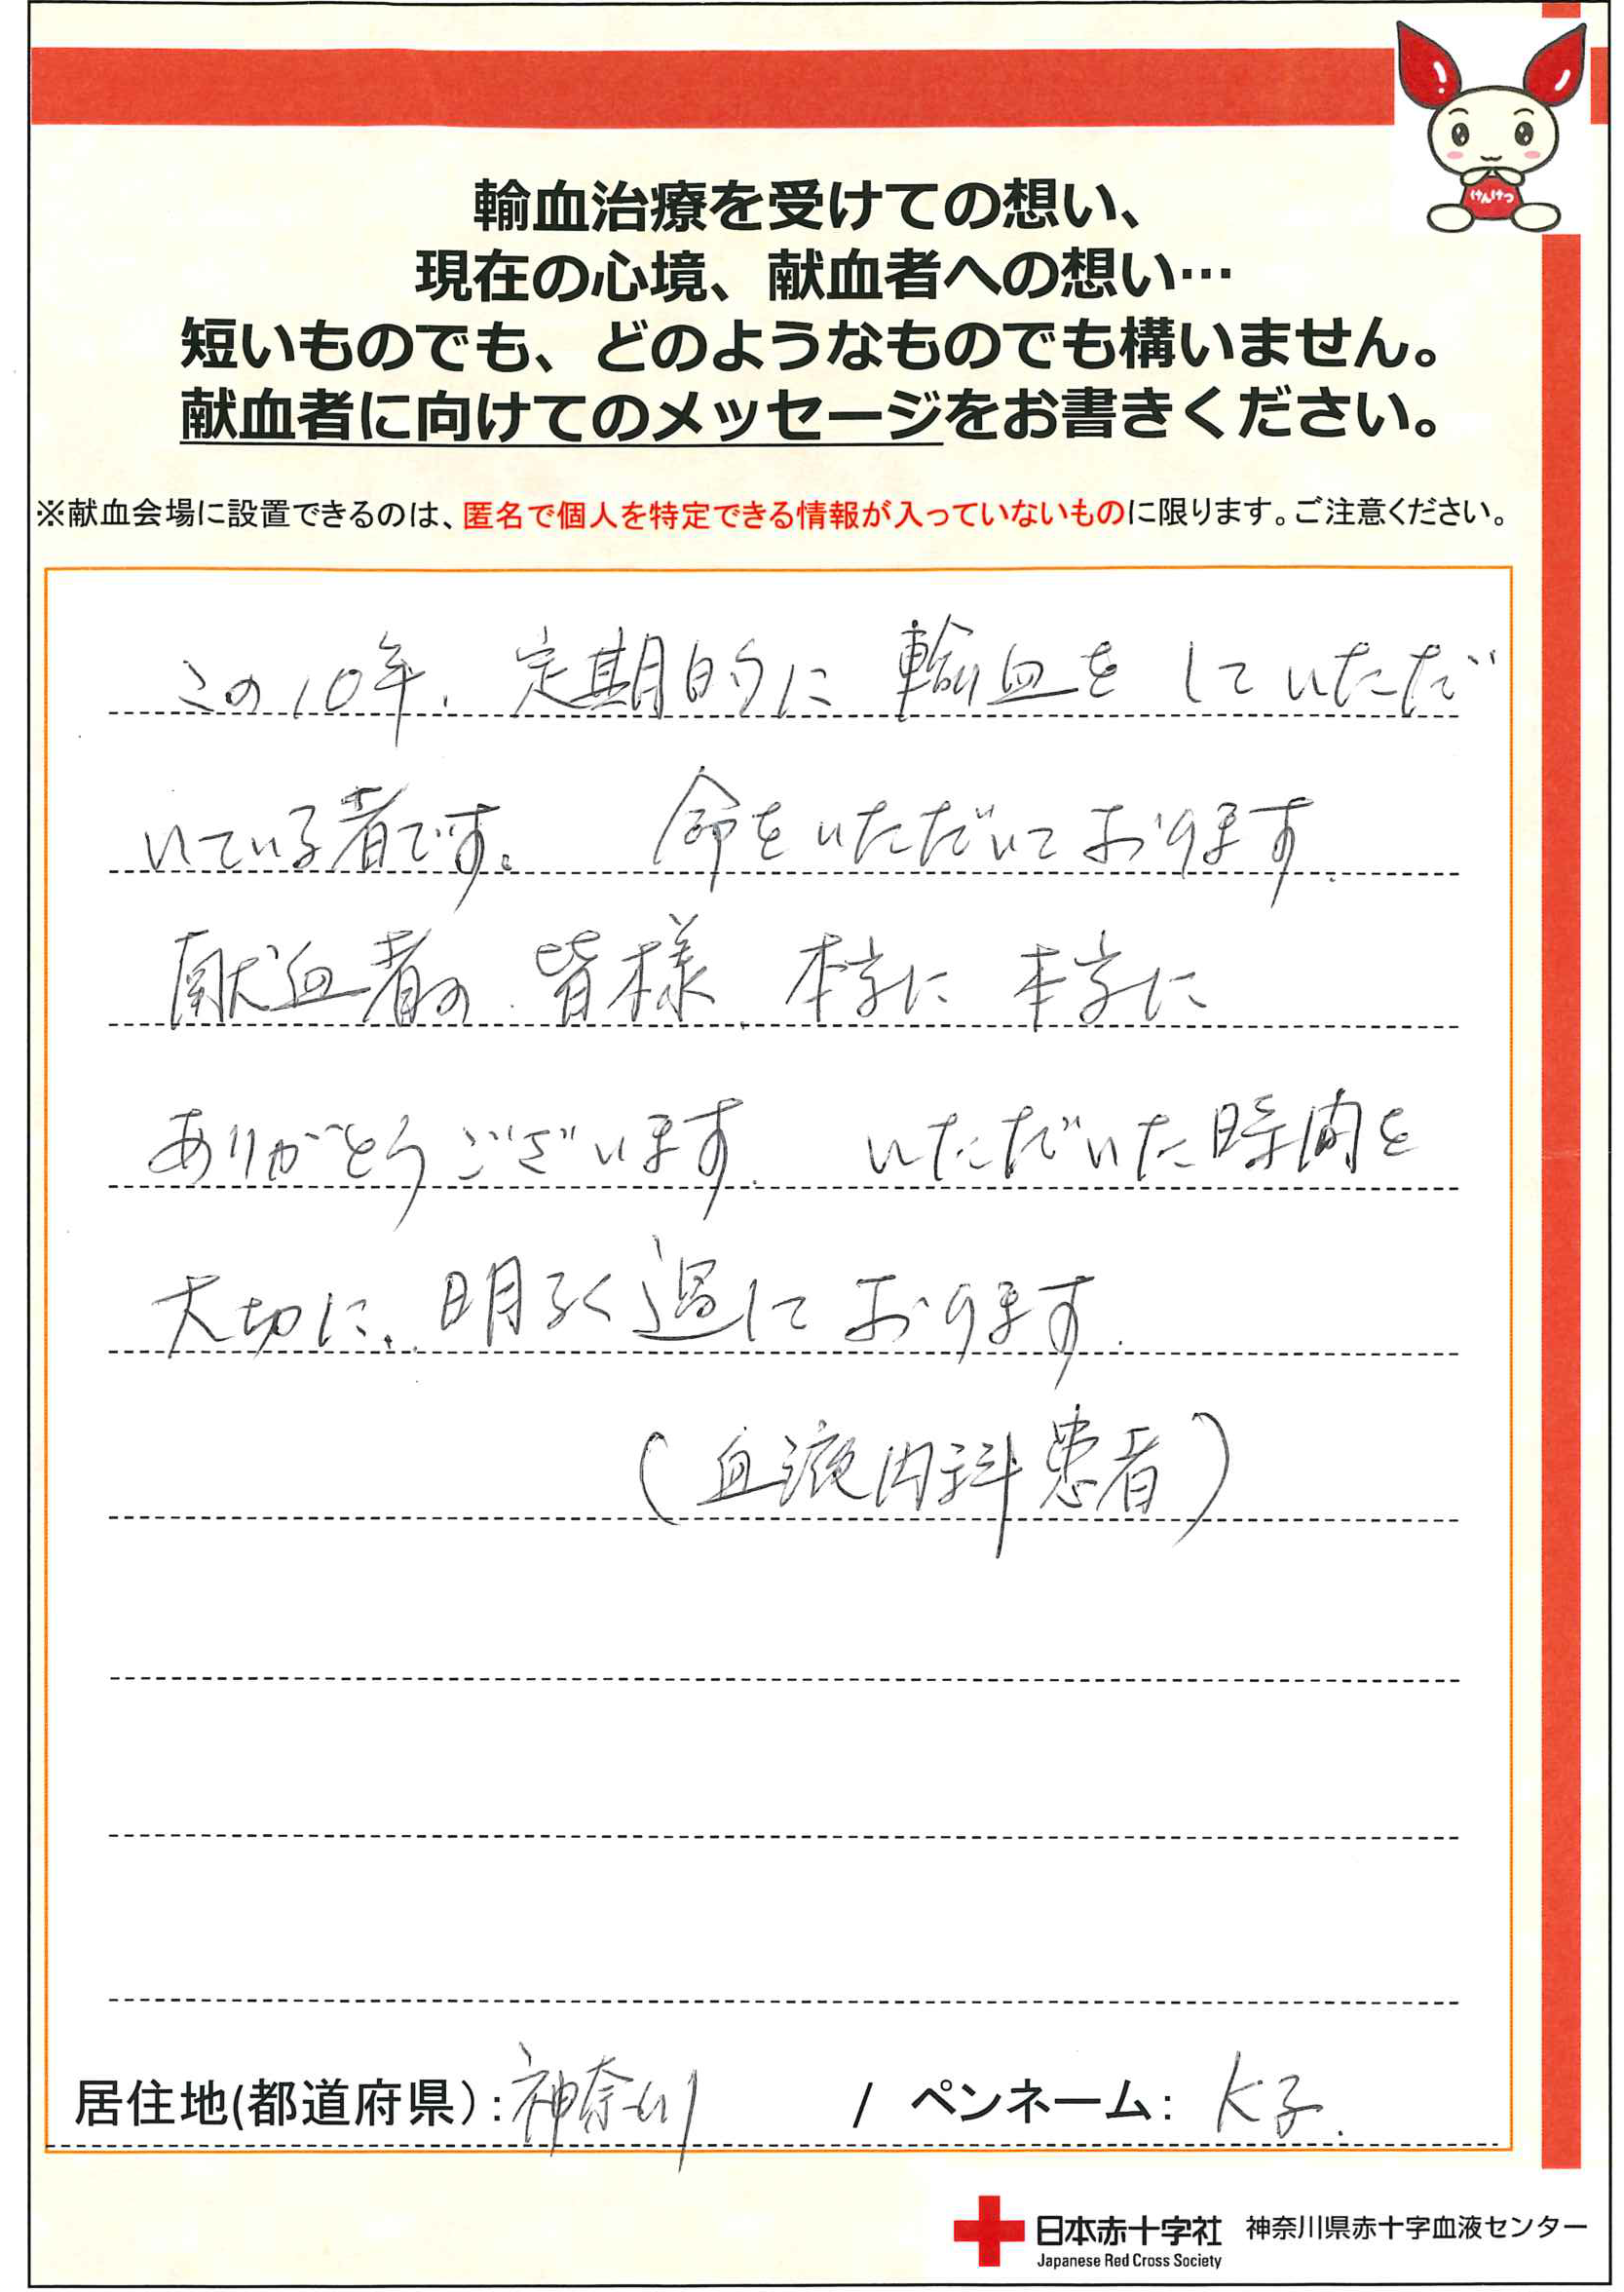 けんけつ
輸血治療を受けての想い、
現在の心境、献血者への想い…
短いものでも、どのようなものでも構いません。
献血者に向けてのメッセージをお書きください。
※献血会場に設置できるのは、匿名で個人を特定できる情報が入っていないものに限ります。ご注意ください。
この10年、定期的に輸血をしていただ
いている者です。 命をいただいております。
献血者の皆様、本当に本当に
ありがとうございます。 いただいた時間を
大切に、明るく過しております。
(血液内科患者)
居住地(都道府県):神奈川 / ペンネーム: K子.
日本赤十字社 神奈川県赤十字血液センター
Japanese Red Cross Society